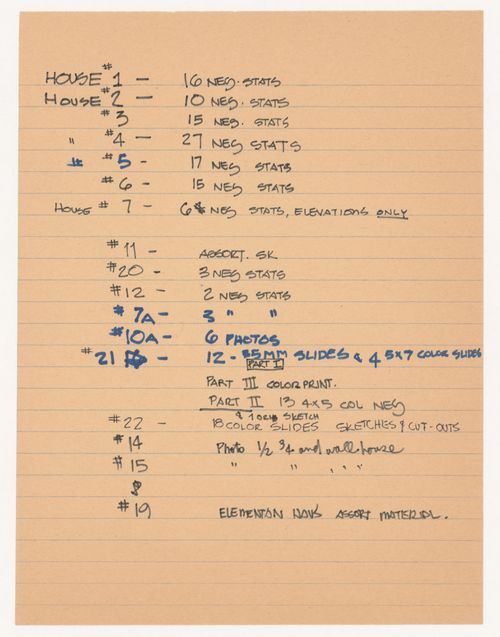 HOUSE #1 - 16 NEG. STATS
HOUSE #2 - 10 NEG. STATS
#3 15 NEG. STATS
" #4 - 27 NEG STATS
#5 - 17 NEG STATS
#6 - 15 NEG STATS
HOUSE #7 - 6 NEG STATS, ELEVATIONS ONLY
#11 - ASSORT. SK.
#20 - 3 NEG STATS
#12 - 2 NEG STATS
#7A - 3 " "
#10A - 6 PHOTOS
#21 - 12 - 35MM SLIDES & 4 5X7 COLOR SLIDES
PART I
PART III COLOR PRINT.
PART II 13 4X5 COL NEG
& 1 ORIG SKETCH
#22 - 18 COLOR SLIDES SKETCHES & CUT-OUTS
#14 Photo 1/2 3/4 and wall house
#15 " " " "
#19 ASSORT MATERIAL.